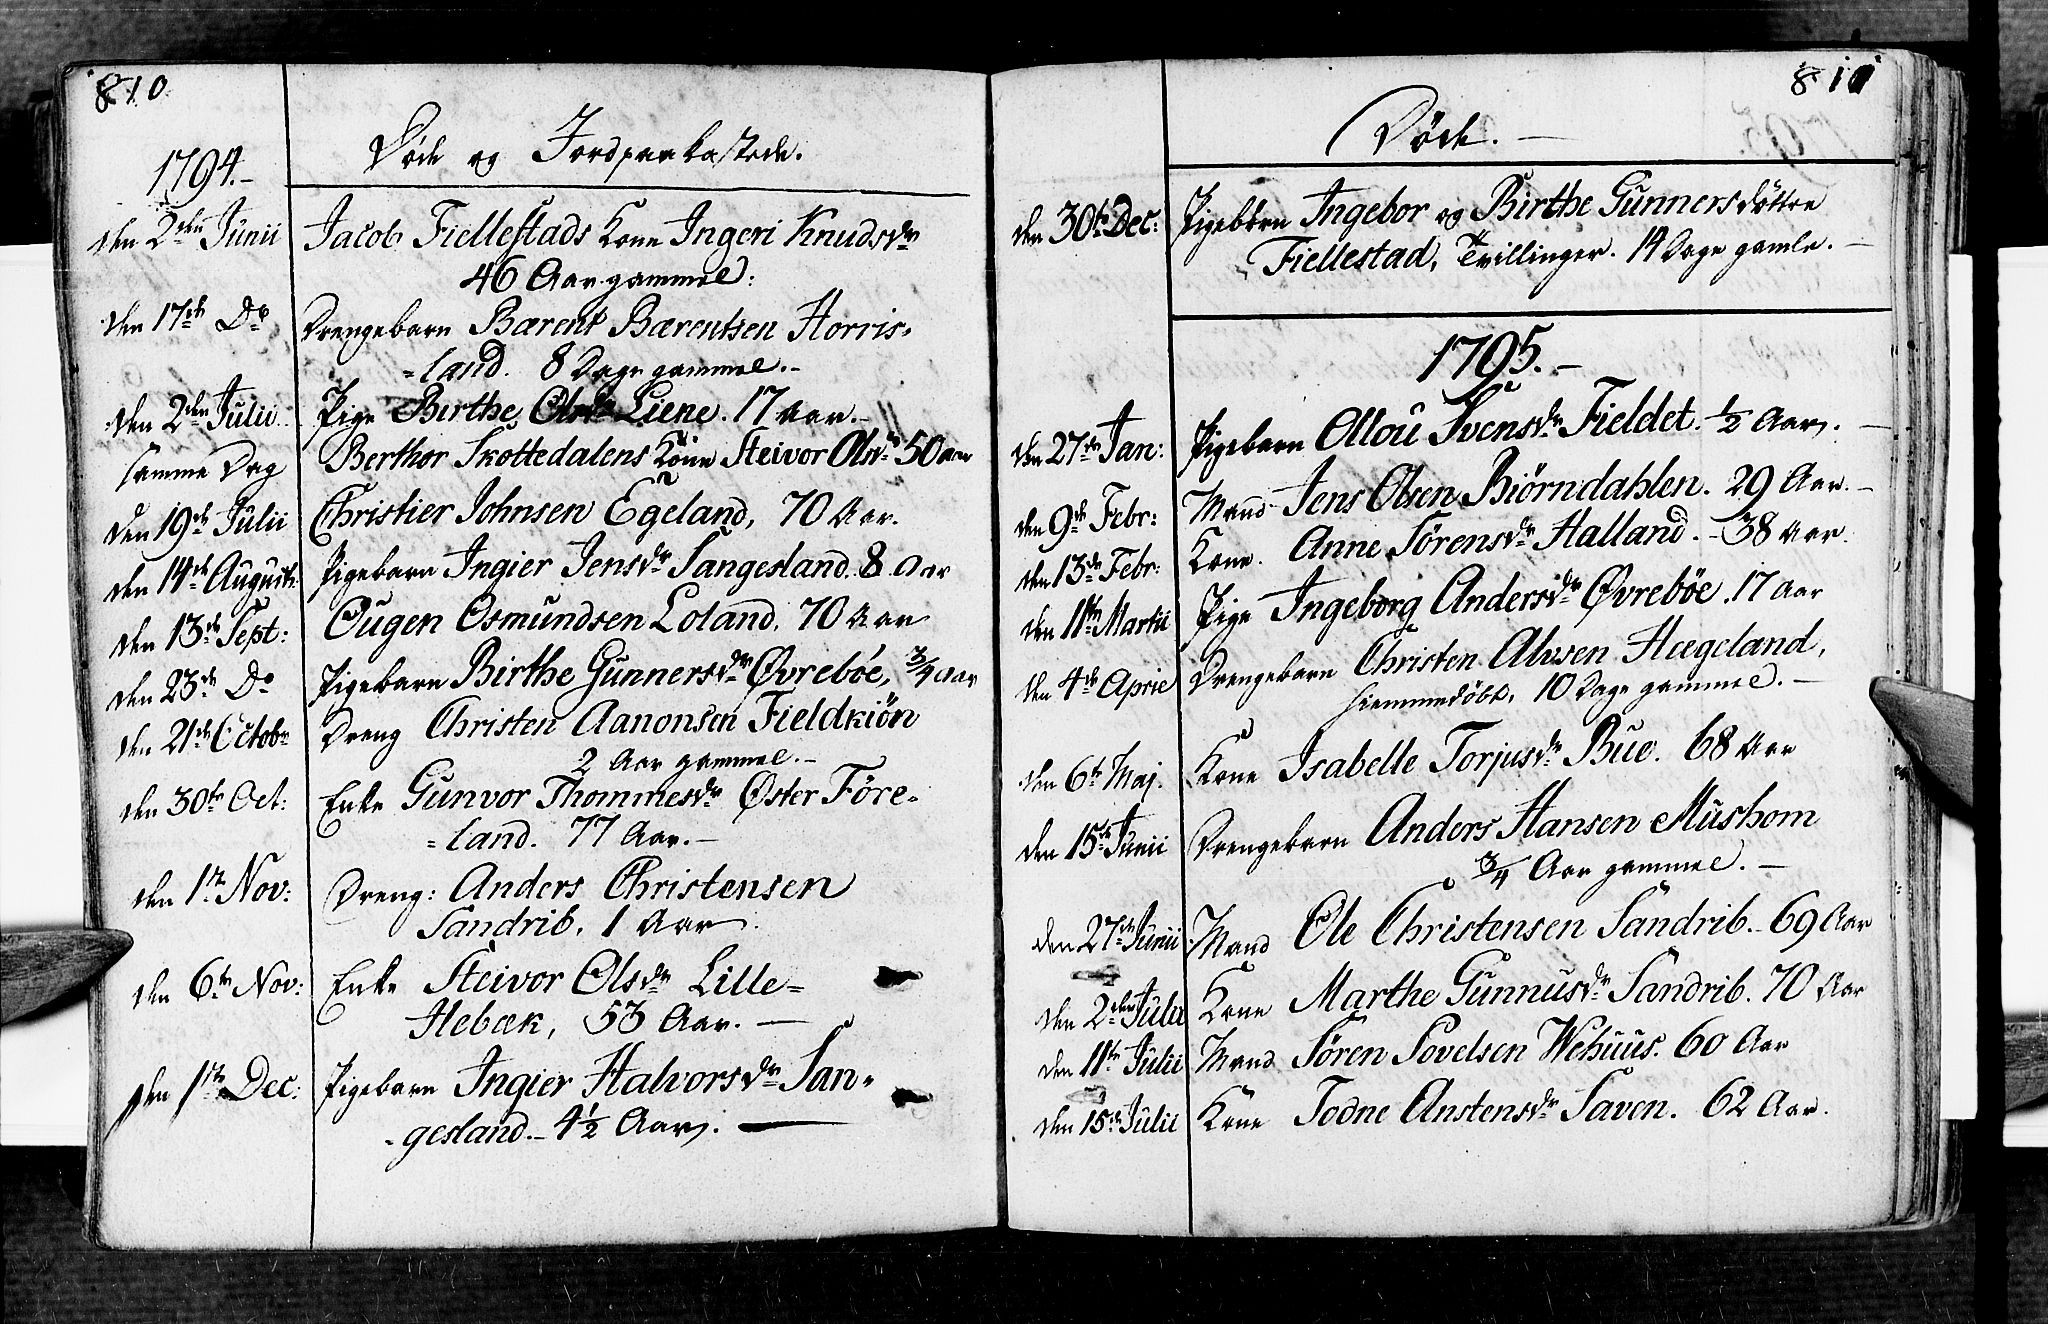 810
1794.-
Døde og Jordpaakastede.
den 2den Junii Jacob Fiellestads Kone Ingeri Knudsdr
46 Aar gammel:
den 17de Do Drengebarn Bærent Bærentsen Horris=
=land. 8 Dage gammel.-
den 2den Julii Pige Birthe Olsdr Liene. 17 Aar.-
samme Dag Berthor Skottedalens Kone Steivor Olsdr 50 Aar
den 19de Julii Christier Johnsen Egeland, 70 Aar.
den 14de August: Pigebarn Ingier Jensdr Sangesland. 8 Aar
den 13de Sept: Ougen Osmundsen Loland. 70 Aar
den 23de Do Pigebarn Birthe Gunnersdr Øvrebøe, 3/4 Aar
den 21de Octobr Dreng Christen Aanonsen Fieldkiøn
2 Aar gammel.-
den 30te Oct: Enke Gunvor Thommesdr Øster Føre=
=land. 77 Aar.-
den 1te Nov: Dreng: Anders Christensen
Sandrib, 1 Aar.
den 6te Nov: Enke Steivor Olsdr Lille=
Hebæk, 53 Aar.-
den 1te Dec: Pigebarn Ingier Halvorsdr San=
-gesland.- 4 1/2 Aar.
811
Døde.-
den 30te Dec: Pigebørn Ingebor og Birthe Gunners døttre
Fiellestad, Tvillinger. 14 Dage gamle.-
1795.-
den 27de Jan: Pigebarn Ollou Svensdr Fieldet. 1/2 Aar.-
den 9de Febr: Mand Jens Olsen Biørndahlen. 29 Aar.-
den 13de Febr: Kone. Anne Sørensdr Halland.- 38 Aar.
den 11te Martii Pige Ingeborg Andersdr Øvrebøe. 17 Aar
den 4de April Drengebarn Christen Alvsen Hægeland,
hiemmedøbt, 10 Dage gammel.-
den 6te Maj. Kone Isabelle Torjusdr Bue. 68 Aar
den 15de Junii Drengebarn Anders Hansen Mushom
3/4 Aar gammel.-
den 27de Junii Mand Ole Christensen Sandrib.- 69 Aar
den 2den Julii Kone Marthe Gunnusdr Sandrib. 70 Aar
den 11te Julii Mand Søren Sovelsen Wehuus. 60 Aar
den 15de Julii Kone Todne Anstensdr Saven. 62 Aar.